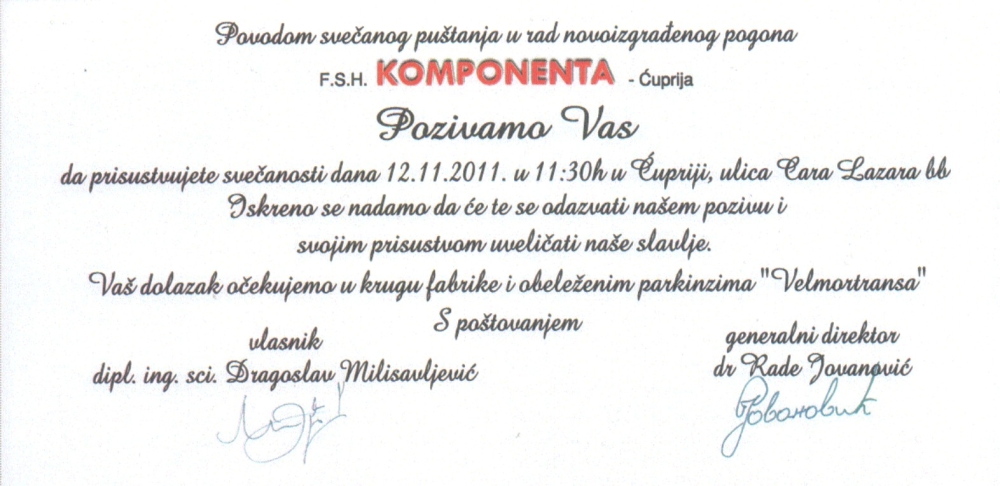 Povodom svečanog puštanja u rad novoizgrađenog pogona
F.S.H. KOMPONENTA - Ćuprija
Pozivamo Vas
da prisustvujete svečanosti dana 12.11.2011. u 11:30h u Ćupriji, ulica Cara Lazara bb
Iskreno se nadamo da će te se odazvati našem pozivu i
svojim prisustvom uveličati naše slavlje.
Vaš dolazak očekujemo u krugu fabrike i obeleženim parkinzima "Velmortransa"
S poštovanjem
vlasnik
dipl. ing. sci. Dragoslav Milisavljević
generalni direktor
dr Rade Jovanović
Рјовановић